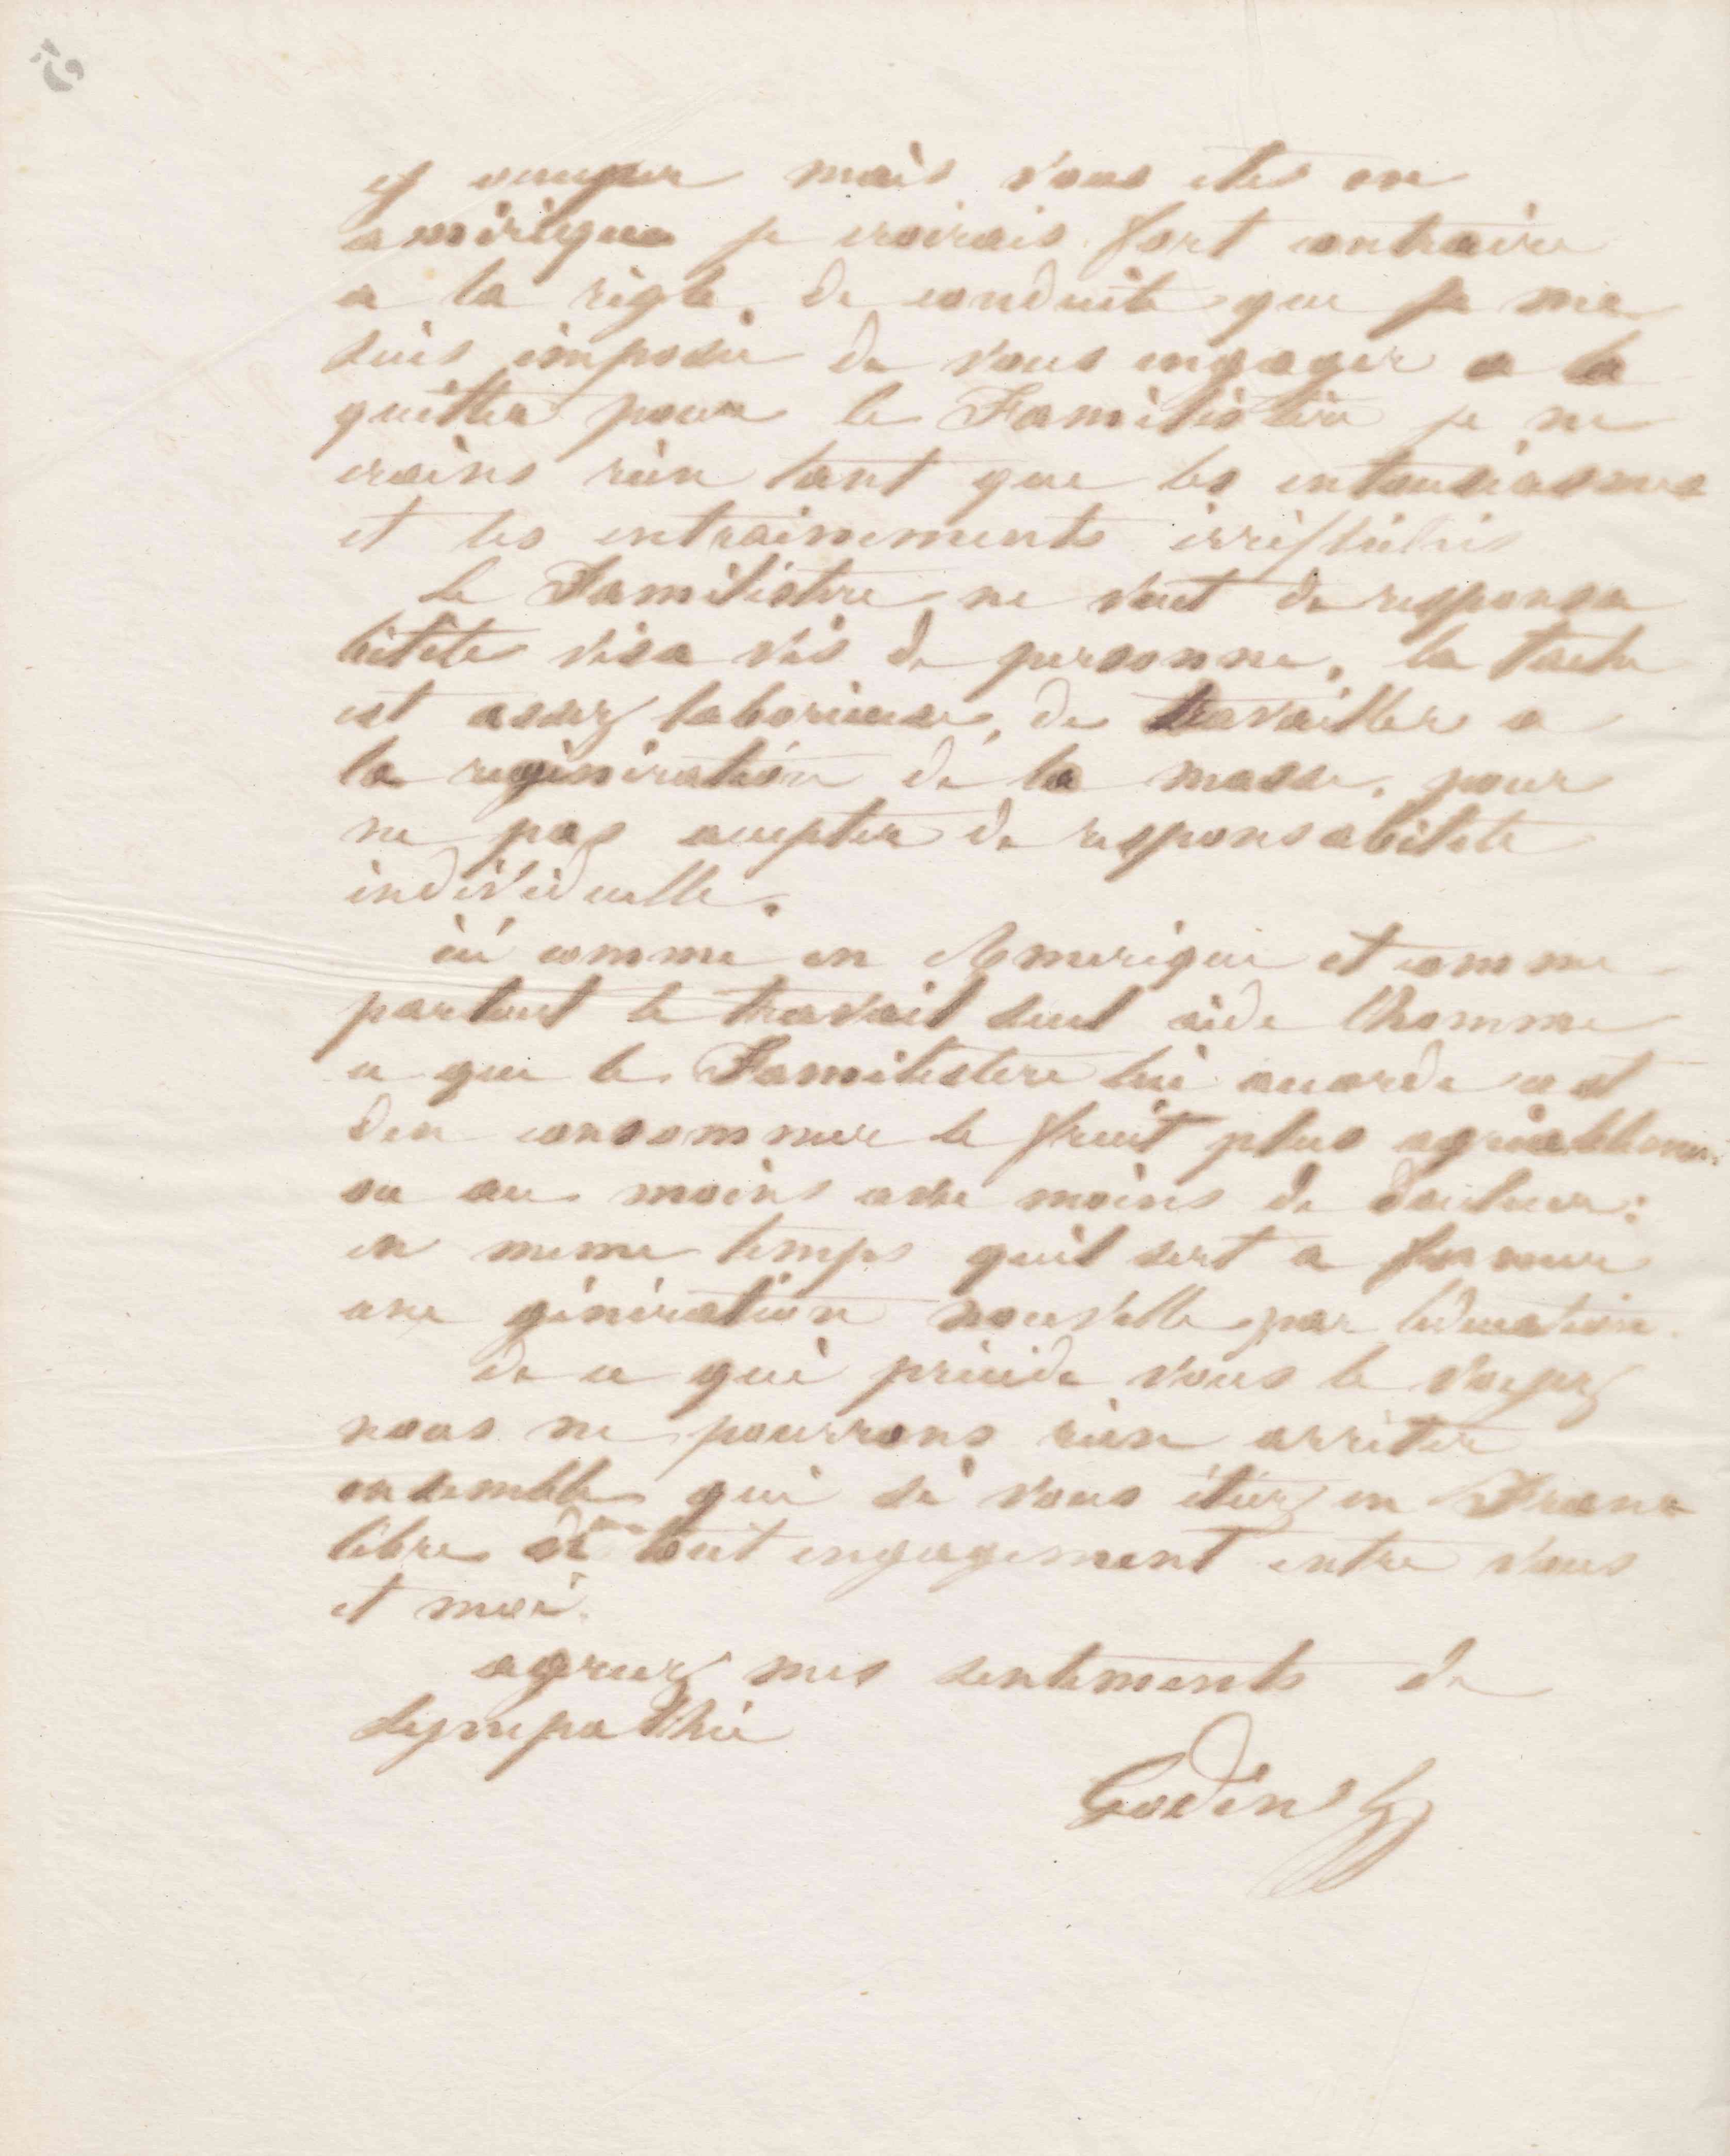 y occuper mais vous etes en
amérique je croirais fort contraire
a la règle de conduite que je me
suis imposée de vous engager a la
quitter pour le Familistère je ne
crains rien tant que les entousiasmes
et les entrainements irréfléchis
Le Familistere ne veut de responsa
bilité vis a vis de personne, la tache
est assez laborieuse, de travailler a
la régénération de la masse, pour
ne pas accepter de responsabilité
individuelle.
ici comme en Amerique et comme
partout le travail seul aide lhomme
ce que le Familistere lui accorde cest
den consommer le fruit plus agréablement
ou au moins avec moins de douleur:
en meme temps quil sert a former
une génération nouvelle par léducation.
de ce qui précède vous le voyez
nous ne pourrons rien arrêter
ensemble que si vous étiez en France
libre de tout engagement entre vous
et moi.
agreez mes sentiments de
sympathie
Godin